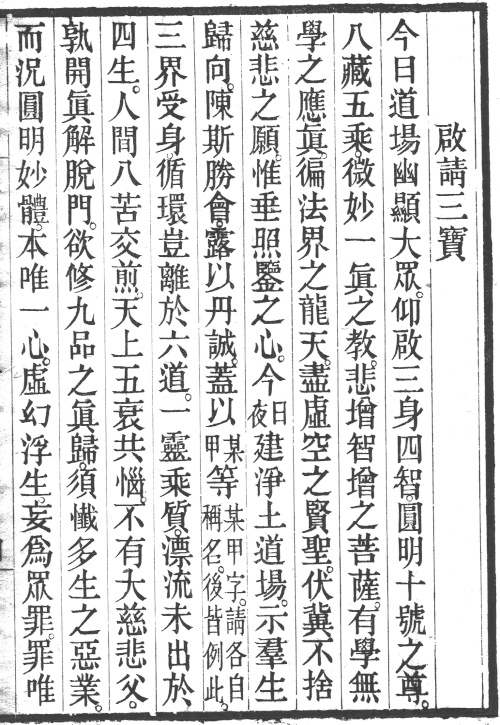 啟請三寶
今日道場幽顯大眾。仰啟三身四智。圓明十號之尊。
八藏五乘。微妙一眞之教。悲增智增之菩薩。有學無
學之應眞。徧法界之龍天。盡虛空之賢聖。伏冀不捨
慈悲之願。惟垂照鑒之心。今日夜建淨土道場。示羣生
歸向。陳斯勝會。露以丹誠。蓋以某甲等某甲字。請各自稱名。後皆例此。
三界受身。循環豈離於六道。一靈乘質。漂流未出於
四生。人間八苦交煎。天上五衰共惱。不有大慈悲父。
孰開眞解脫門。欲修九品之眞歸。須懺多生之惡業。
而況圓明妙體。本唯一心。虛幻浮生。妄爲眾罪。罪唯